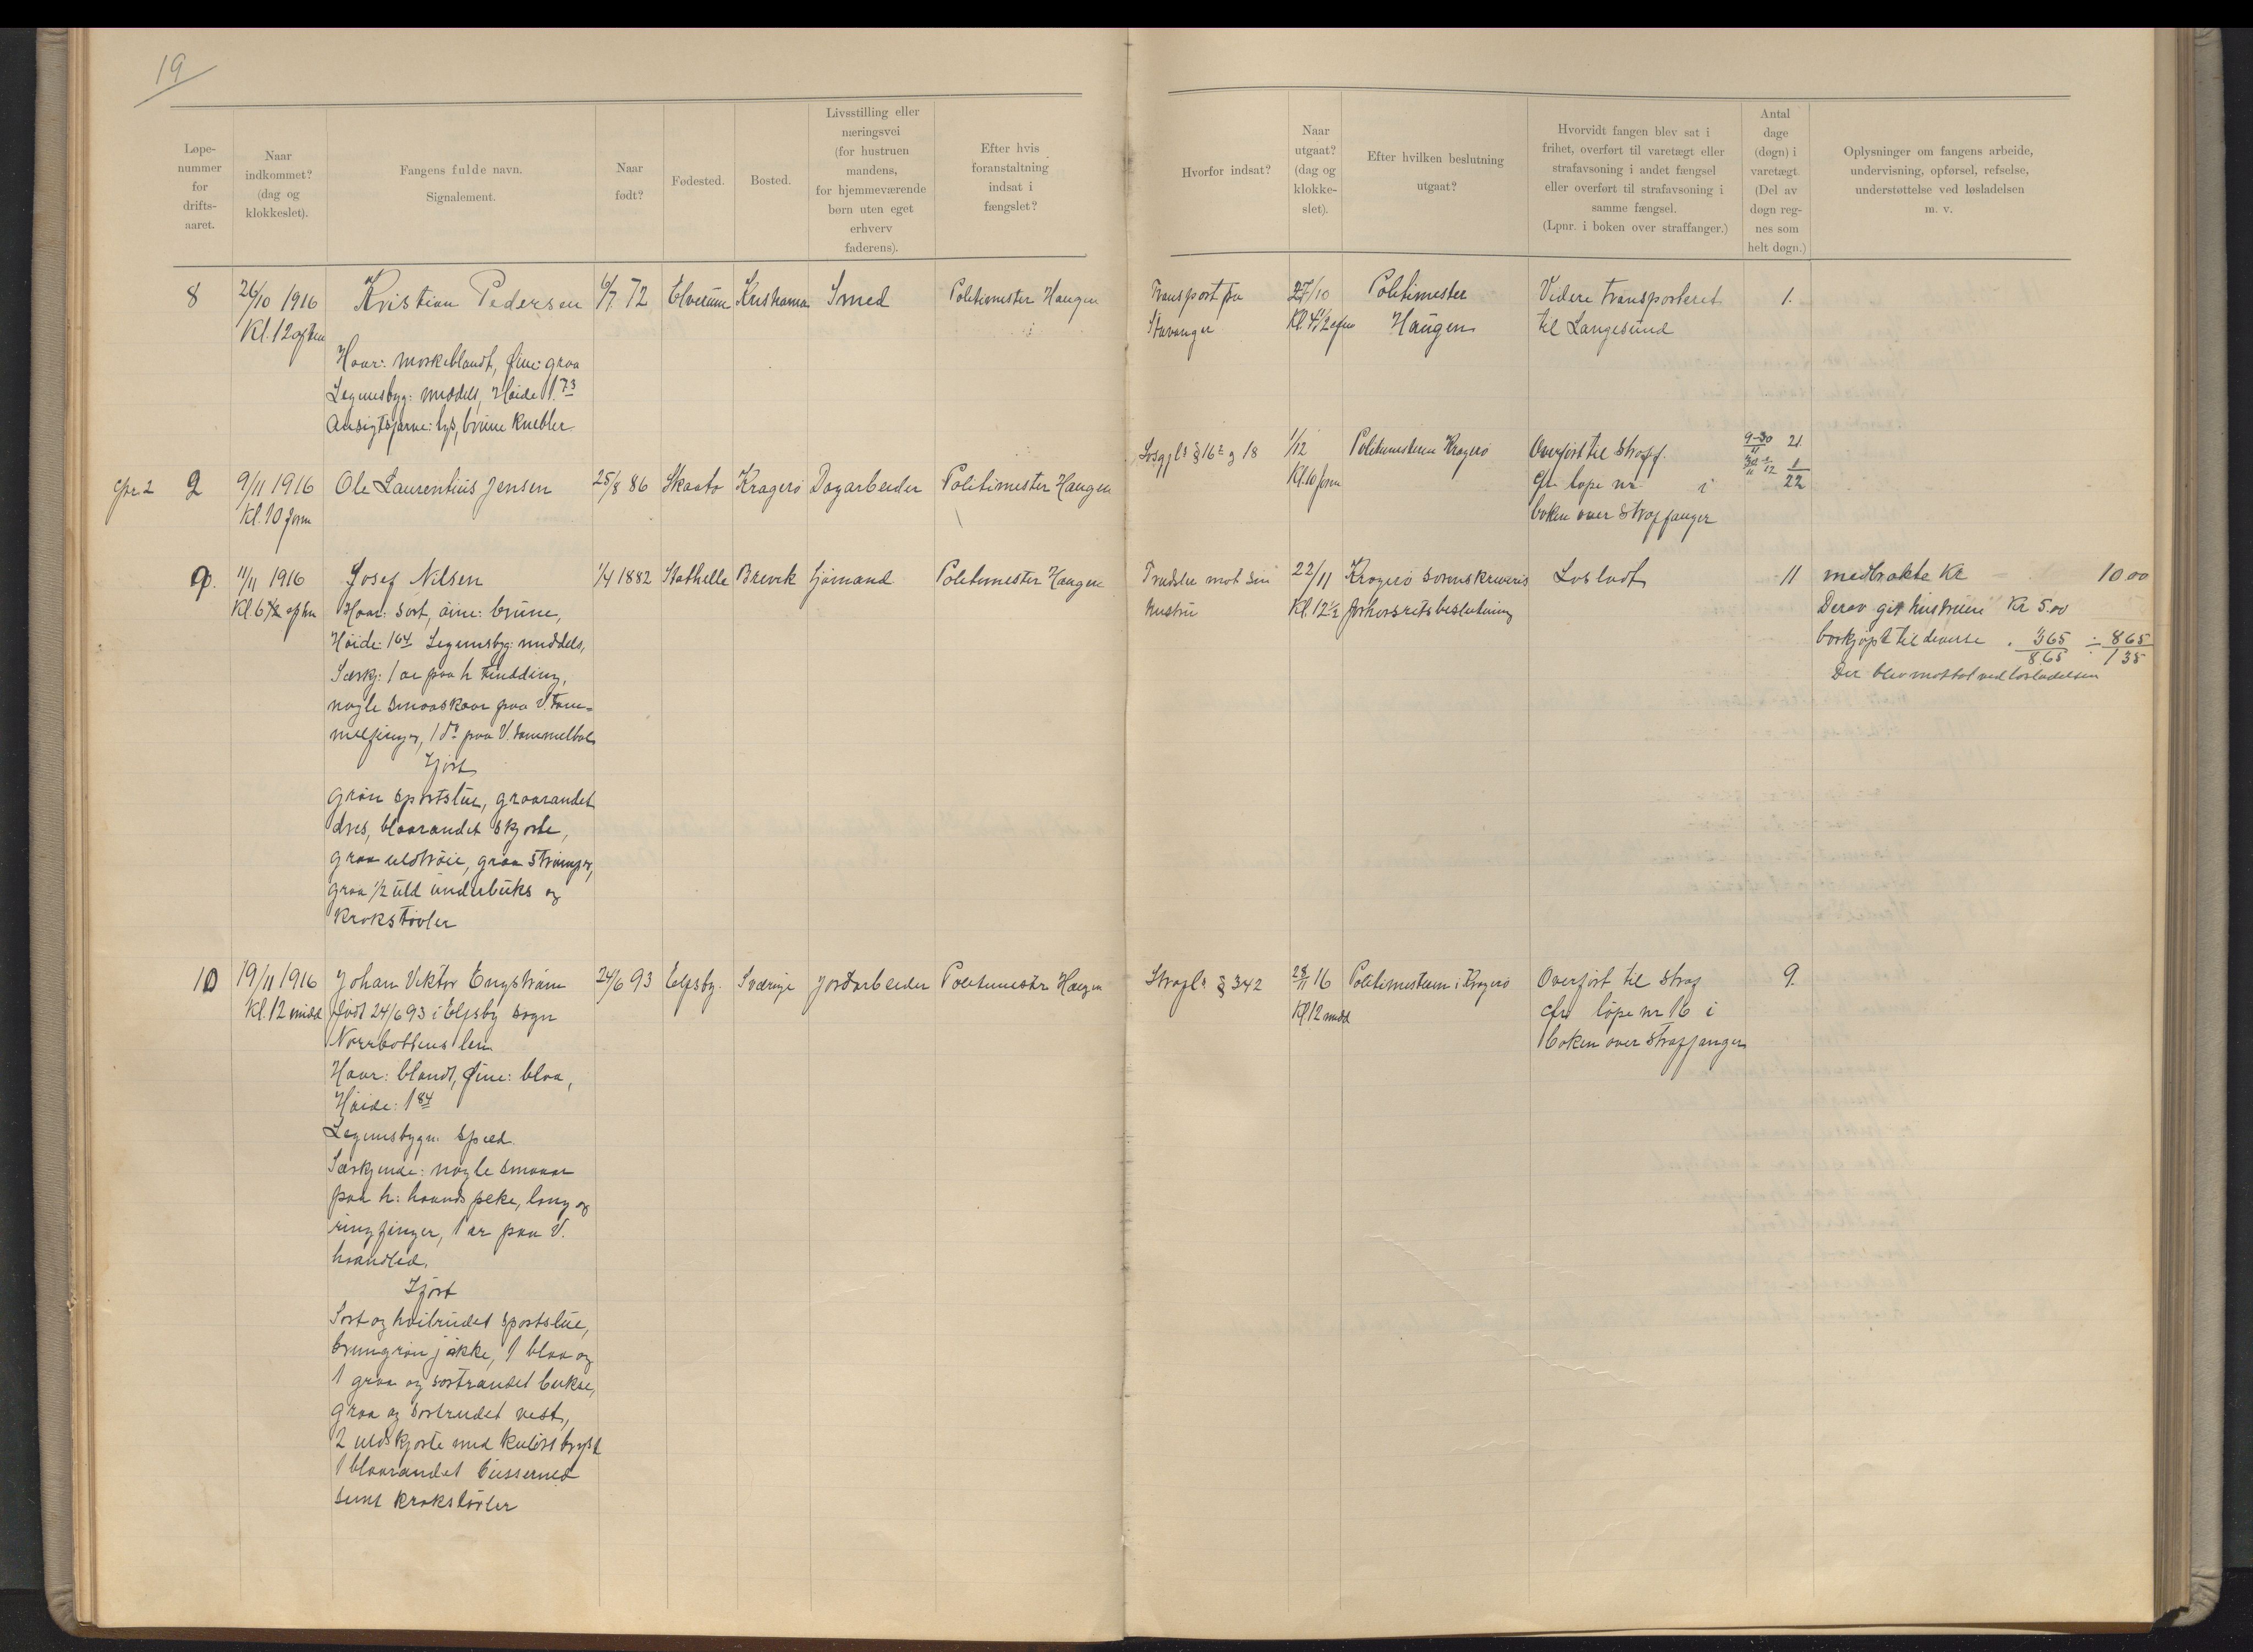 19
Løpe-
nummer
for
drifts-
aaret.
Naar
indkommet?
(dag og
klokkeslet).
Fangens fulde navn.
Signalement.
Naar
født?
Fødested.
Bosted.
Livsstilling eller
næringsvei
(for hustruen
mandens,
for hjemmeværende
børn uten eget
erhverv
faderens).
Efter hvis
foranstaltning
indsat i
fængslet?
Hvorfor indsat?
Naar
utgaat?
(dag og
klokke-
slet).
Efter hvilken beslutning
utgaat?
Hvorvidt fangen blev sat i
frihet, overført til varetægt eller
strafavsoning i andet fængsel
eller overført til strafavsoning i
samme fængsel.
(Lpnr. i boken over straffanger.)
Antal
dage
(døgn) i
varetægt.
(Del av
døgn reg-
nes som
helt døgn.)
Oplysninger om fangens arbeide,
undervisning, opførsel, refselse,
understøttelse ved løsladelsen
m. v.
8
26/10 1916
Kl. 12 aften
Kristian Pedersen
6/7 72
Elverum
Kristiania
Smed
Politimester Haugen
Haar: mørkeblandt, Øine: graa
Legemsbyg: middels, Høide 1.73
Ansigtsfarve: lys, brune Knebler
Transport fra
Stavanger
27/10
Kl. 4 1/2 efm
Politimester
Haugen
Videre transporteret
til Langesund
1.
cfr 2
9
9/11 1916
Kl. 10 form
Ole Laurentius Jensen
25/8 86
Skaatø
Kragerø
Dagarbeider
Politimester Haugen
Løsgjl. § 16 og 18
1/12
Kl. 10 form
Politimesteren Kragerø
Overført til Straff.
Cfr. løpe nr. i
boken over Straffanger
9-30/11 21
1
22
9.
11/11 1916
Kl. 6 1/2 efm
Josef Nilsen
1/4 1882
Stathelle
Brevik
Sjømand
Politimester Haugen
Haar: Sort, øine: brune,
Høide: 164 Legemsbyg: middels,
Særkj: 1 ar paa h tinding,
nogle smaaskaar paa V. tom-
melfinger, 1 do paa V. tommelbal
Iført
grøn sportslue, graarandet
dres, blaarandet skjorte,
graa uldtrøie, graa Strømper,
graa 1/2 uld underbuks og
Krokstøvler
Trudsler mot sin
hustru
22/11
Kl. 12 1/2
Kragerø sorenskriveris
forhørsretsbeslutning
Løsladt
11
medbrakte Kr 10.00
Derav git hustruen Kr 5.00
bortkjøpt til diverse " 3.65 ÷ 8.65
8.65 1.35
Der blev mottat ved løsladelsen
10
19/11 1916
Kl. 12 midd
Johan Viktor Engstrøm
24/6 93
Elfsby.
Sverige
Jordarbeider
Politimester Haugen
født 24/6 93 i Elfsby sogn
Norrbottens len
Haar: blondt, Øine: blaa,
Høide: 1 84
Legemsbygn. spæd.
Særkjende: nogle smaaar
paa h: haands peke, lang og
ringfinger, 1 ar paa V.
haandled.
Iført
Sort og hvitrudet sportslue,
brungrøn jakke, 1 blaa og
1 graa og sortrandet bukse,
graa og sortrudet vest,
2 uldskjorte med kulørt bryst
1 blaarandet busserund
samt krokstøvler
Straffl. § 342
28/11 16
Kl 12 midd
Politimesteren i Kragerø
Overført til straf
cfr løpe nr 16 i
boken over Straffanger
9.